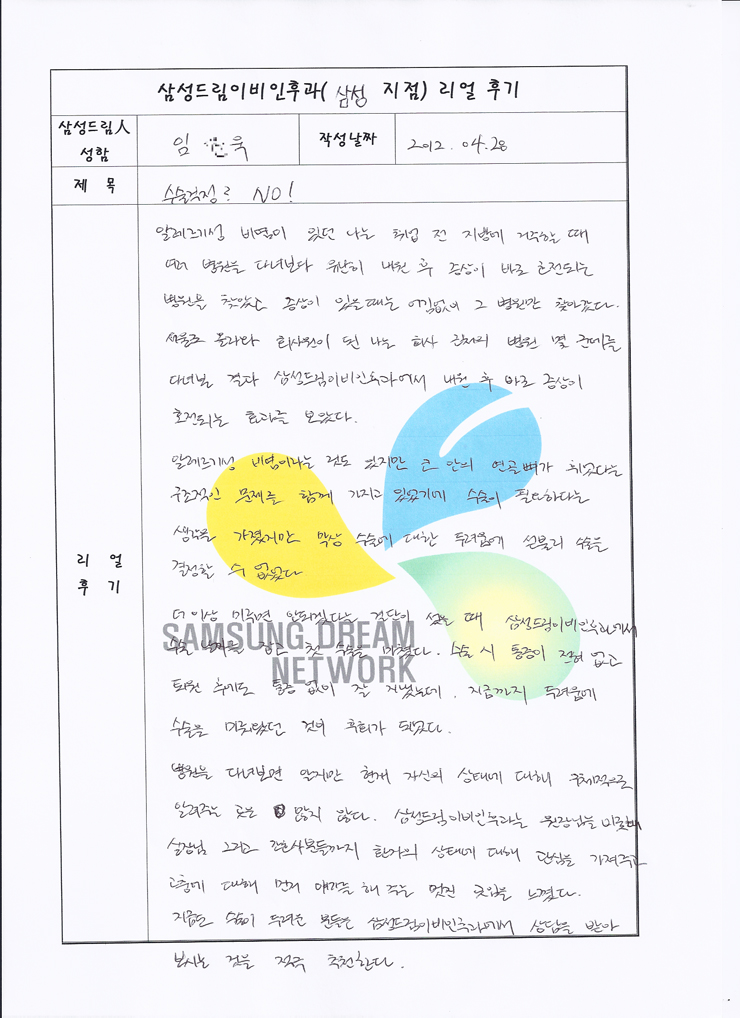 삼성드림이비인후과( 삼성 지점) 리얼 후기
삼성드림人 성함
임 욱
작성날짜
2012. 04. 28
제 목
수술걱정? NO!
리 얼 후 기
알레르기성 비염이 있던 나는 취업 전 지방에 거주하는 때
여러 병원을 다녀보다 유난히 내원 후 증상이 바로 호전되는
병원을 찾았고 증상이 있을때는 어김없이 그 병원만 찾아갔다.
서울로 올라와 회사원이 된 나는 회사 근처의 병원 몇 군데를
다녀본 결과 삼성드림이비인후과에서 내원 후 바로 증상이
호전되는 효과를 보았다.
알레르기성 비염이라는 것도 있지만 코 안의 연골뼈가 휘었다는
구조적인 문제를 함께 가지고 있었기에 수술이 필요하다는
생각을 가졌지만 막상 수술에 대한 두려움에 선뜻 수술을
결정할 수 없었다
더이상 미루면 안되겠다는 결단이 섰을 때 삼성드림이비인후과에서
수술 날짜를 잡고 첫 수술을 마쳤다. 수술 시 통증이 전혀 없고
퇴원 후에도 통증 없이 잘 지냈는데, 지금까지 두려움에
수술을 미뤄왔던 것이 후회가 되었다.
병원을 다녀보면 알지만 현재 자신의 상태에 대해 구체적으로
알려주는 곳은 많지 않다. 삼성드림이비인후과는 원장님을 비롯해
실장님 그리고 간호사분들까지 환자의 상태에 대해 관심을 가져주고
고충에 대해 먼저 얘기를 해 주는 멋진 곳임을 느꼈다.
지금도 수술이 두려운 분들은 삼성드림이비인후과에서 상담을 받아
보시는 것을 적극 추천한다.
SAMSUNG DREAM
NETWORK